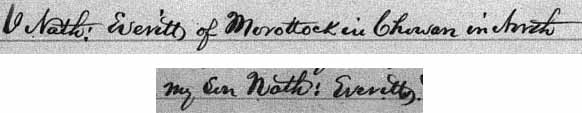 I Nath: Everitt, of Morottock in Chowan in North
my Son Nath: Everitt,